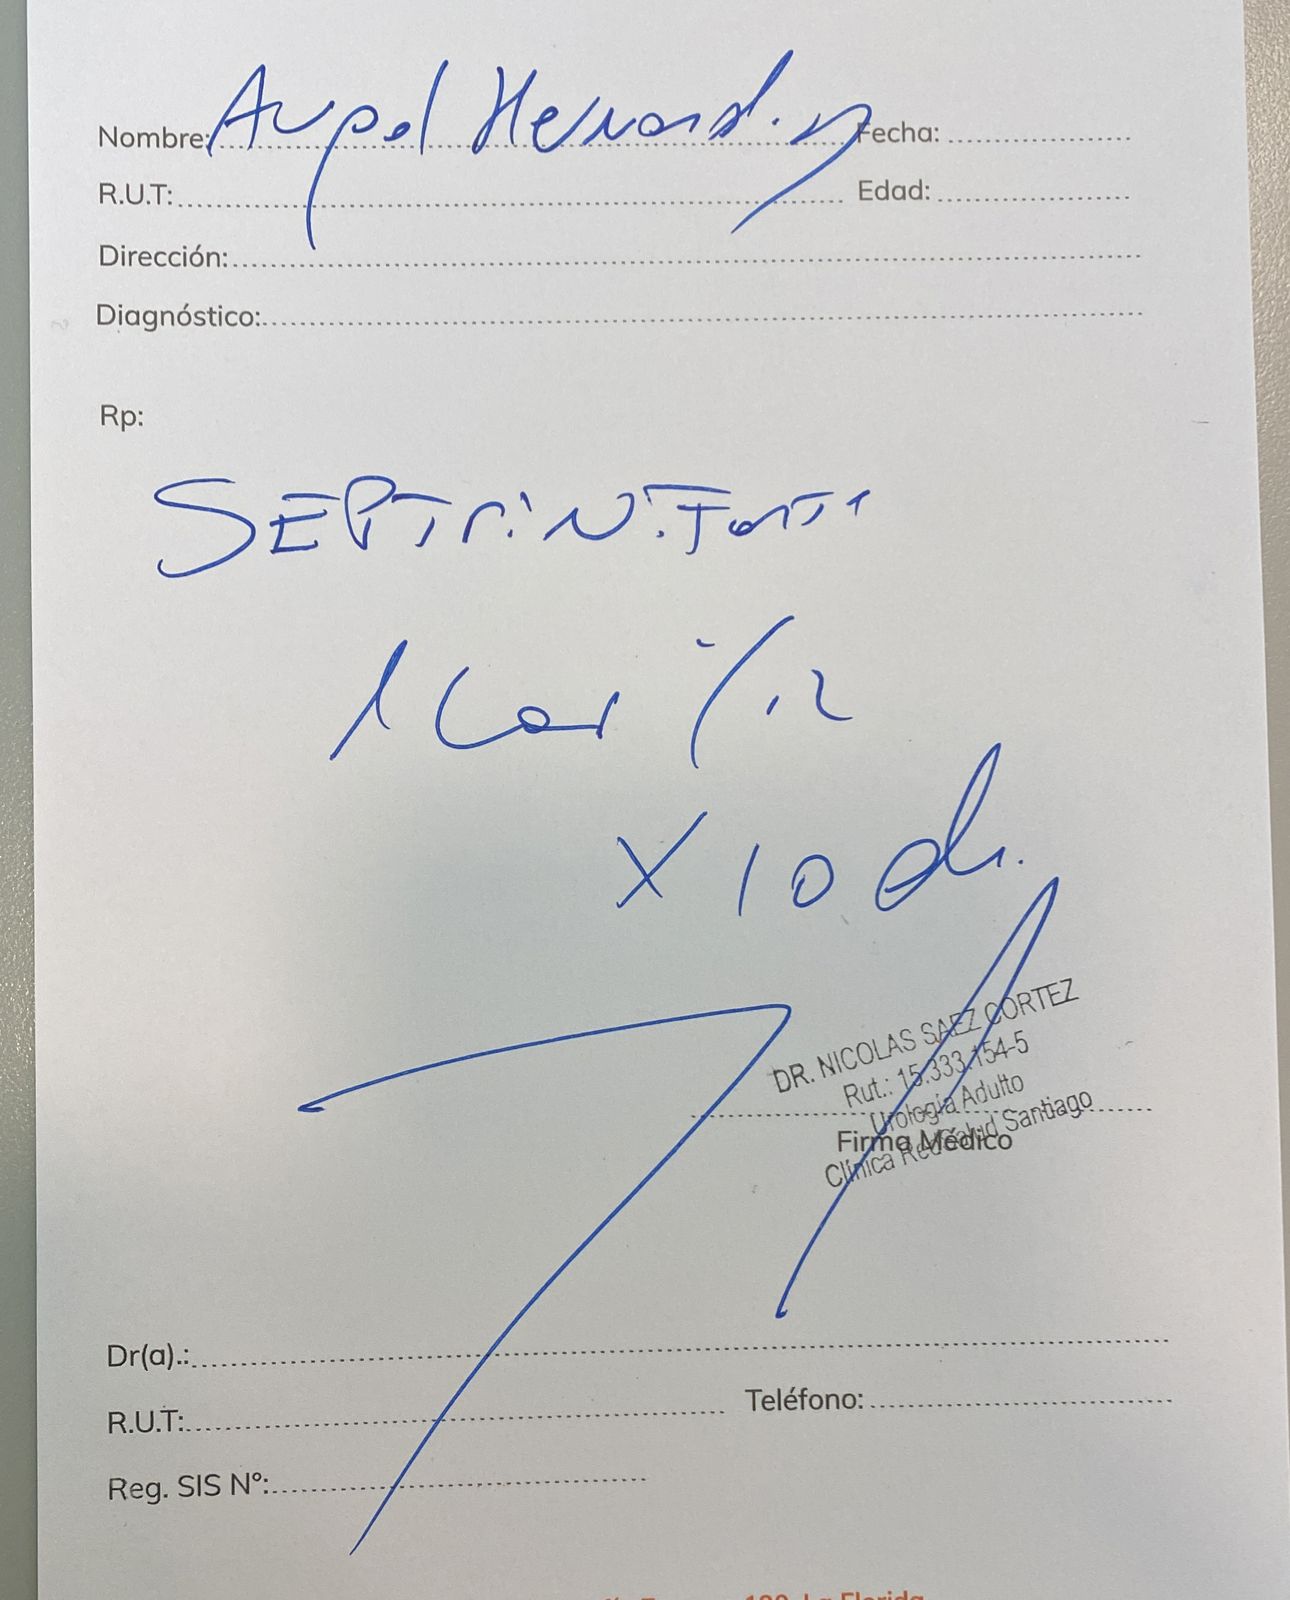 Nombre: Angel Hernandez Fecha:
R.U.T: Edad:
Dirección:
Diagnóstico:
Rp:
SEPTriN Forte
1 Com c/12
x 10 di.
DR. NICOLAS SAEZ CORTEZ
Rut.: 15.333.154-5
Urología Adulto
Firma Médico
Clínica RedSalud Santiago
Dr(a).:
R.U.T: Teléfono:
Reg. SIS Nº:
La Florida